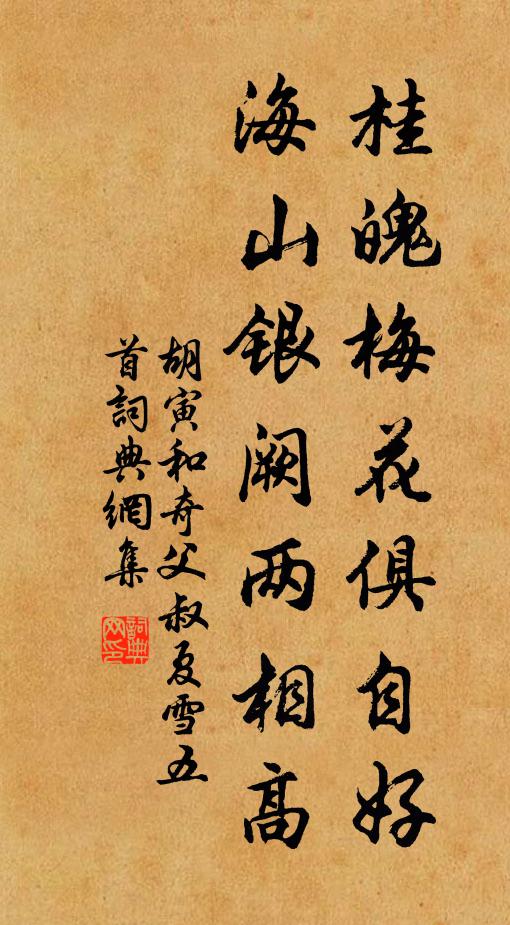 桂魄梅花俱自好
海山银阙两相高
胡寅和奇父叔夏雪五
首詞典網集
詞典網印